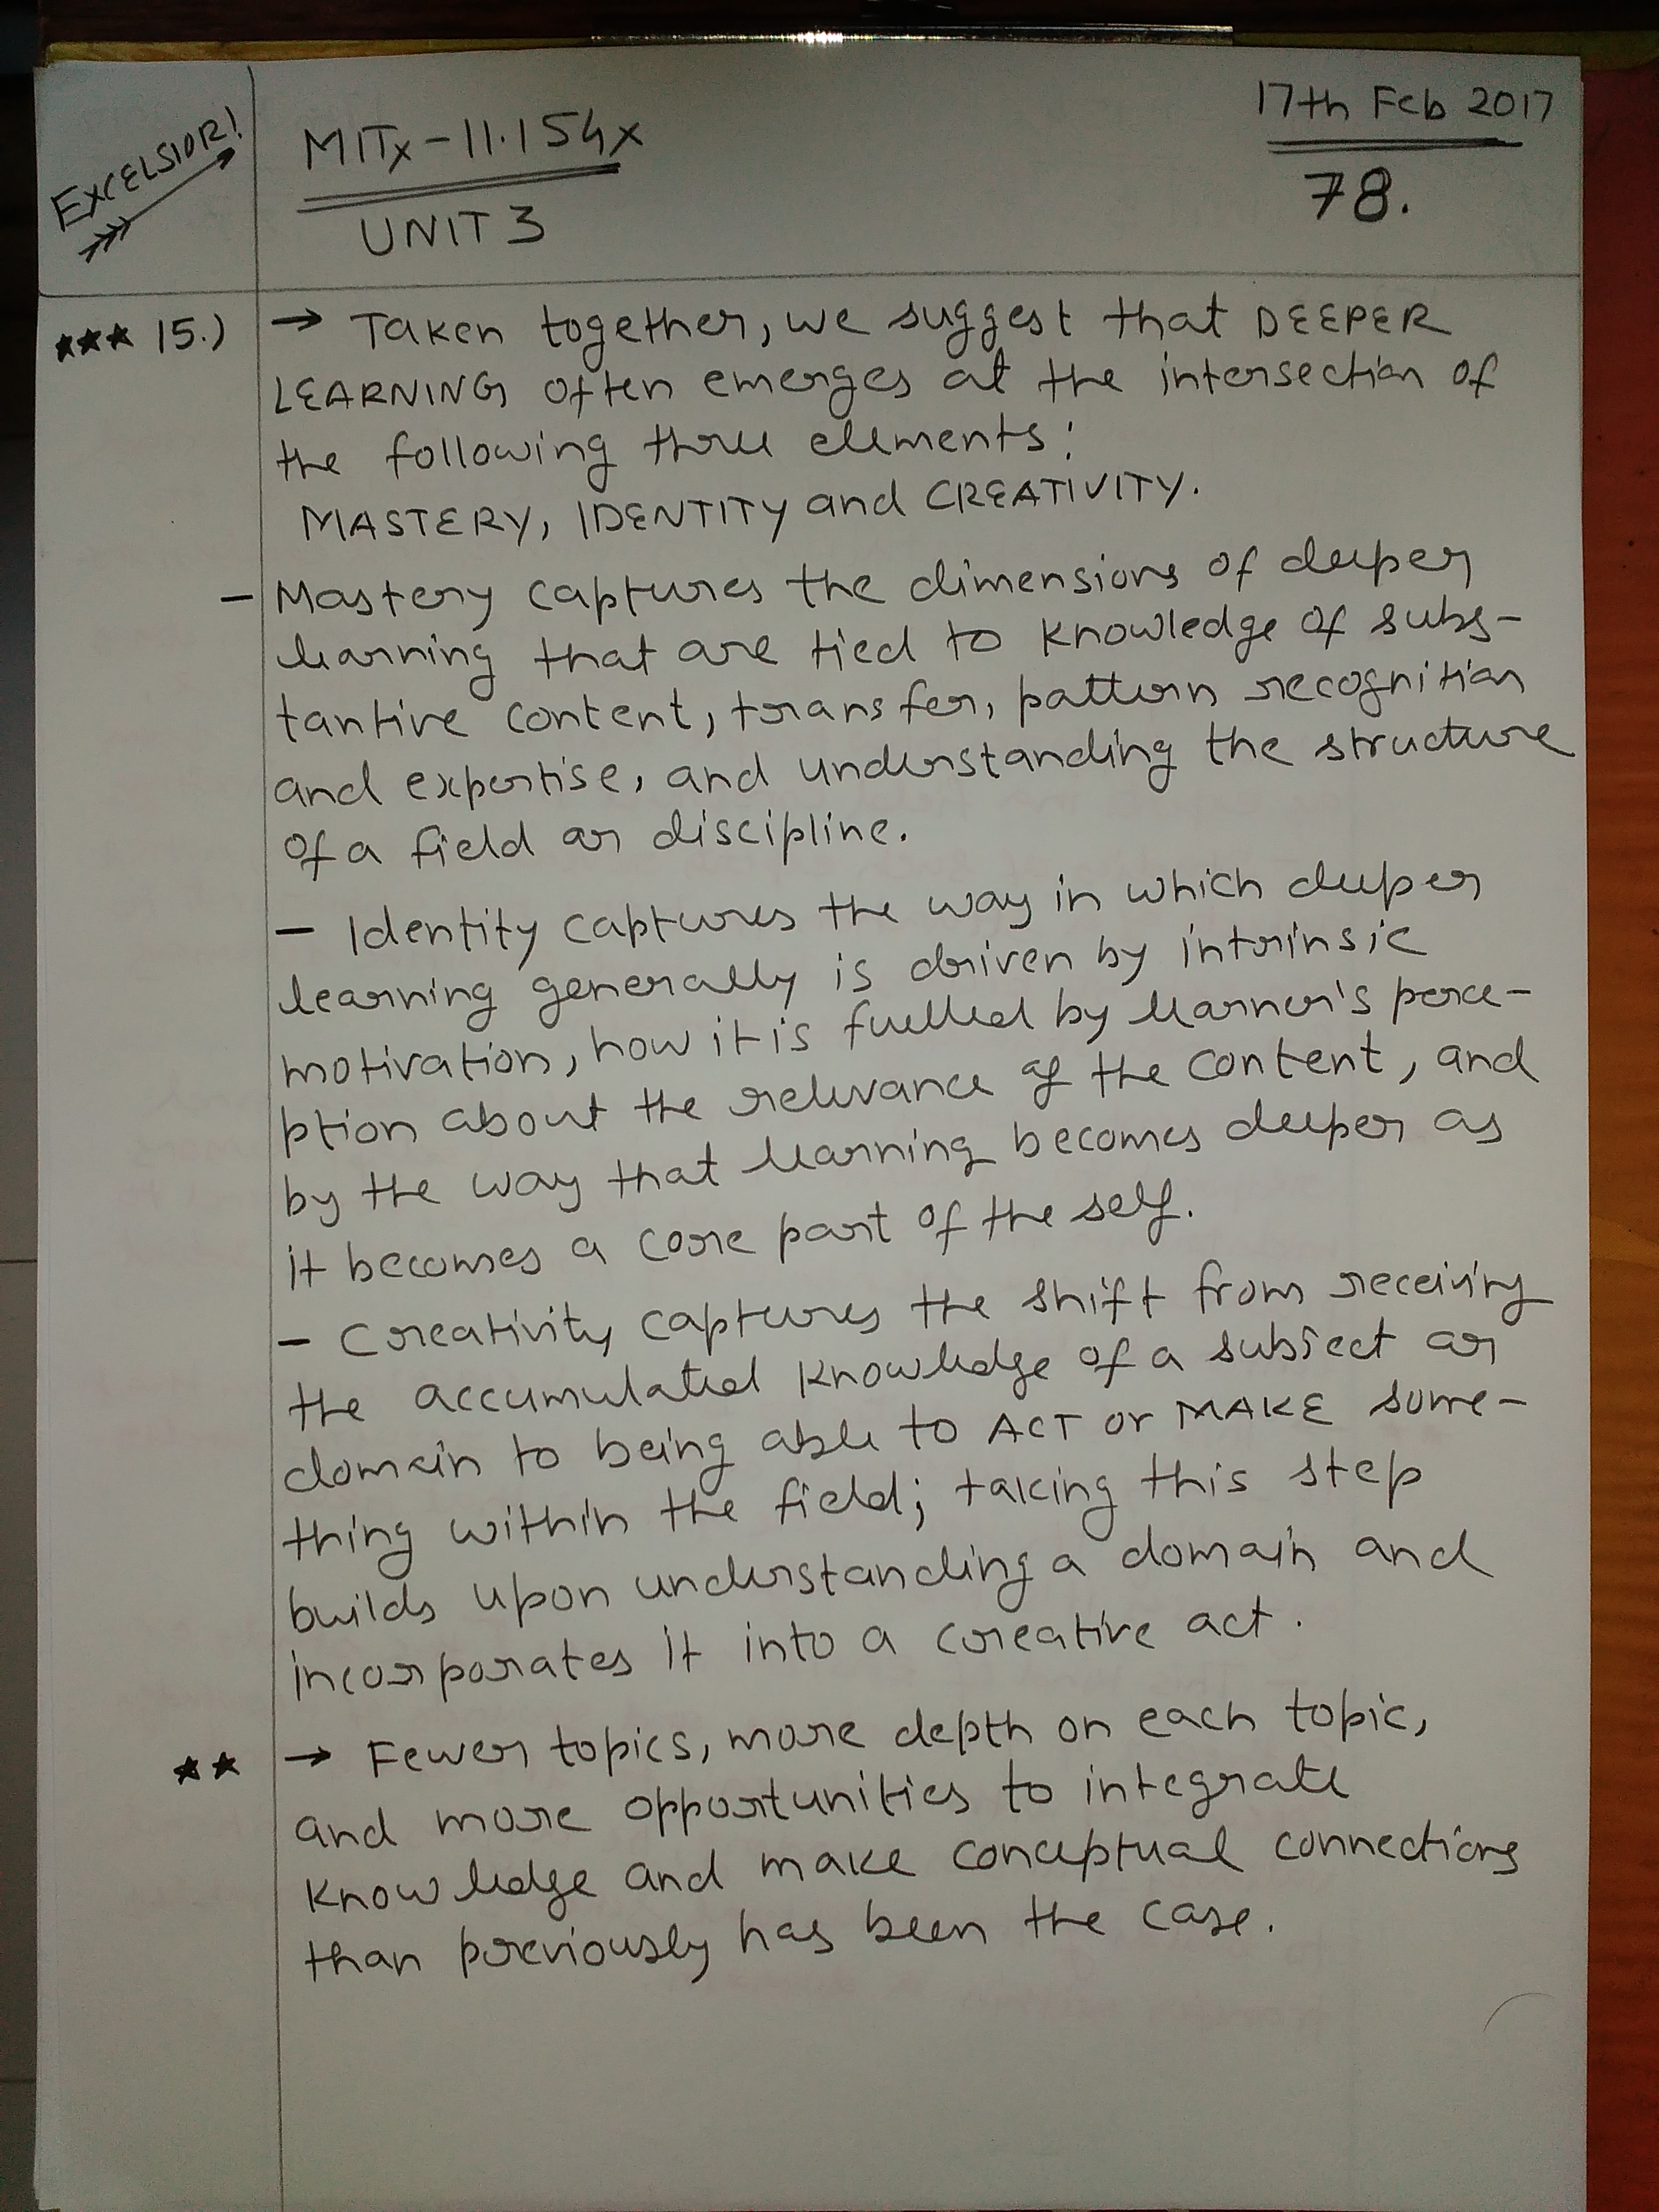 EXCELSIOR!
MITx-11.154x
UNIT 3
17th Feb 2017
78.
★★★ 15.) → Taken together, we suggest that DEEPER
LEARNING often emerges at the intersection of
the following three elements:
MASTERY, IDENTITY and CREATIVITY.
- Mastery captures the dimensions of deeper
learning that are tied to knowledge of subs-
tantive content, transfer, pattern recognition
and expertise, and understanding the structure
of a field or discipline.
- Identity captures the way in which deeper
learning generally is driven by intrinsic
motivation, how it is fuelled by learner's perce-
ption about the relevance of the content, and
by the way that learning becomes deeper as
it becomes a core part of the self.
- Creativity captures the shift from receiving
the accumulated knowledge of a subject or
domain to being able to ACT or MAKE some-
thing within the field; taking this step
builds upon understanding a domain and
incorporates it into a creative act.
★★ → Fewer topics, more depth on each topic,
and more opportunities to integrate
knowledge and make conceptual connections
than previously has been the case.